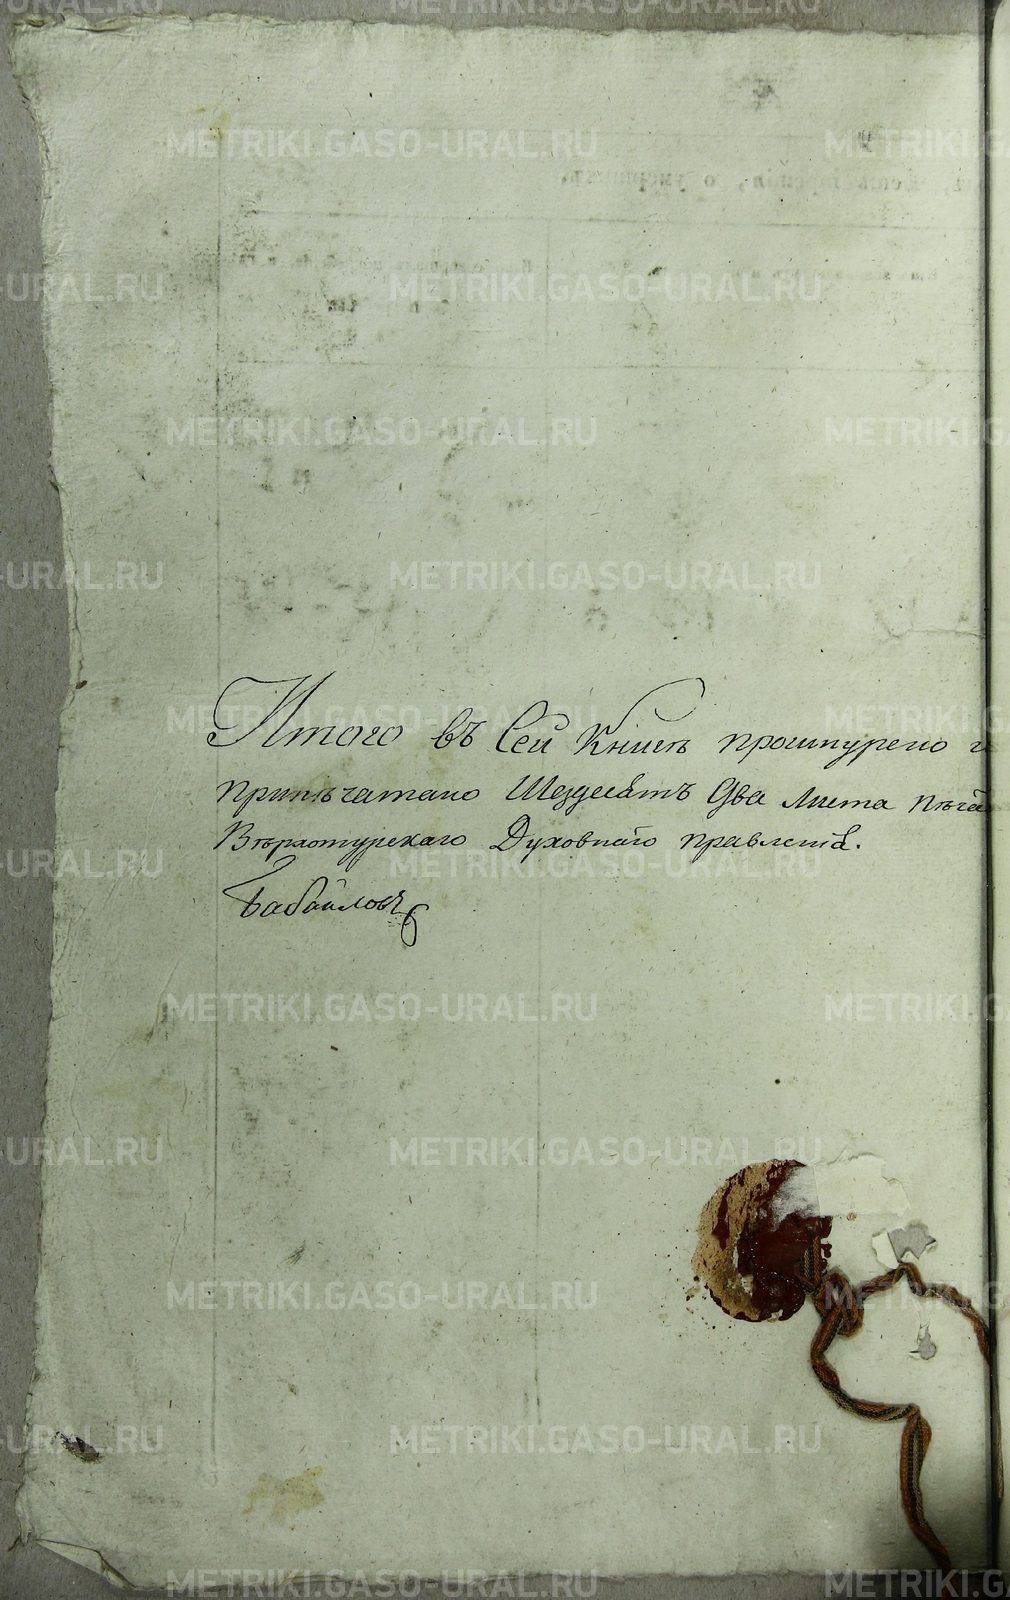 Итого въ Сей Книгѣ прошнурено и
припѣчатано Шездесятъ Два листа пѣча
Вѣрхотурскаго Духовнаго правленія.
Бабайловъ
METRIKI.GASO-URAL.RU